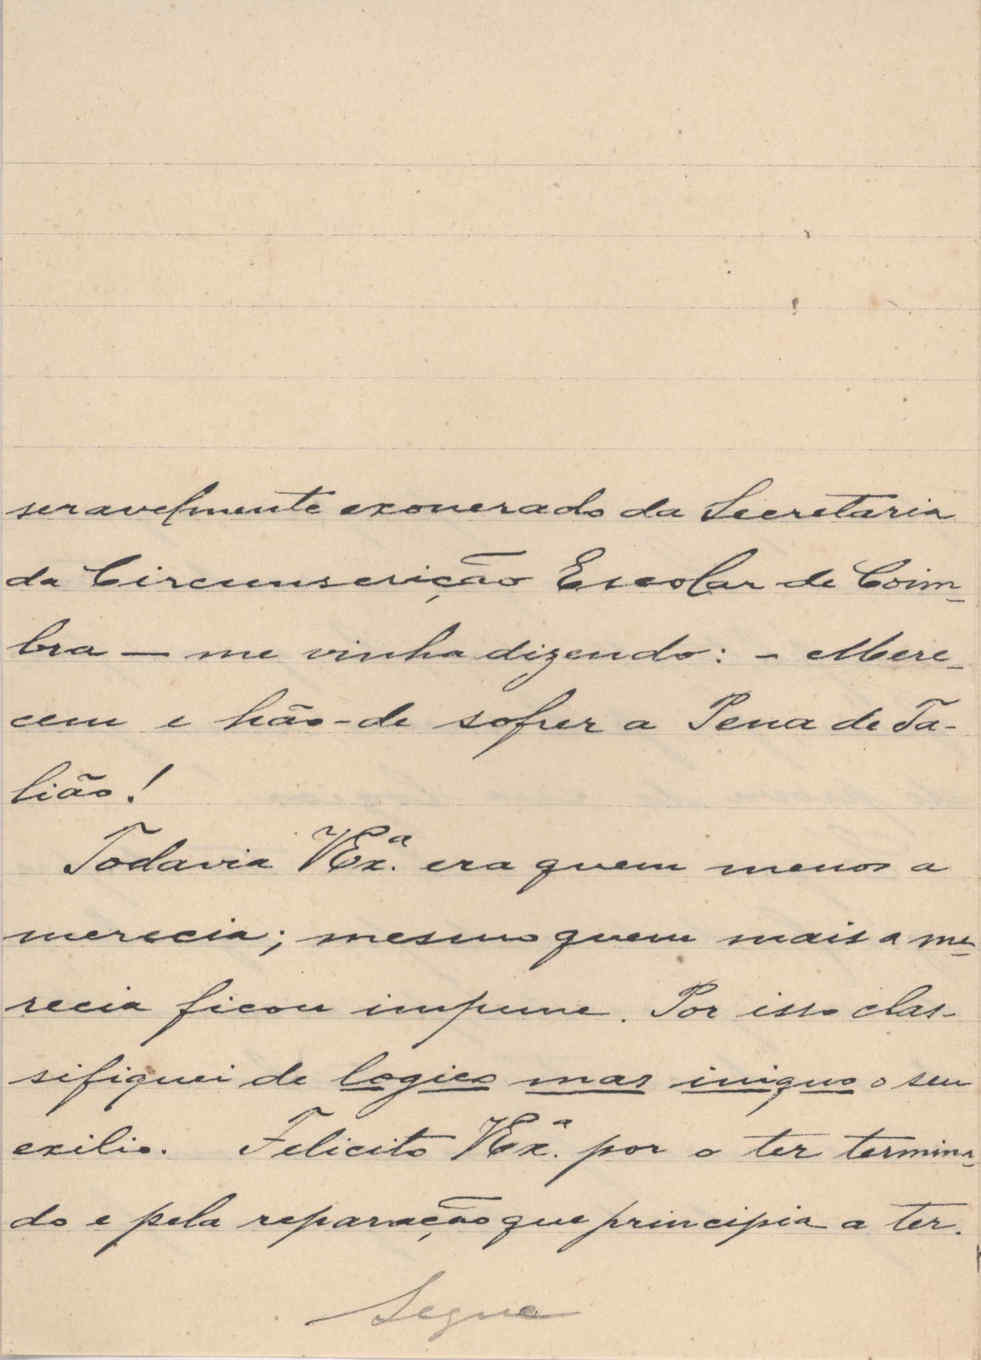 seravelmente exonerado da Secretaria
da Circumscrição Escolar de Coim-
bra — me vinha dizendo: - Mere-
cem e hão-de sofrer a Pena de Ta-
lião!
Todavia VEx.ª era quem menos a
merecia; mesmo quem mais a me-
recia ficou impune. Por isso clas-
sifiquei de logico mas iniquo o seu
exilio. Felicito VEx.ª por o ter termina-
do e pela reparação que principia a ter.
Segue